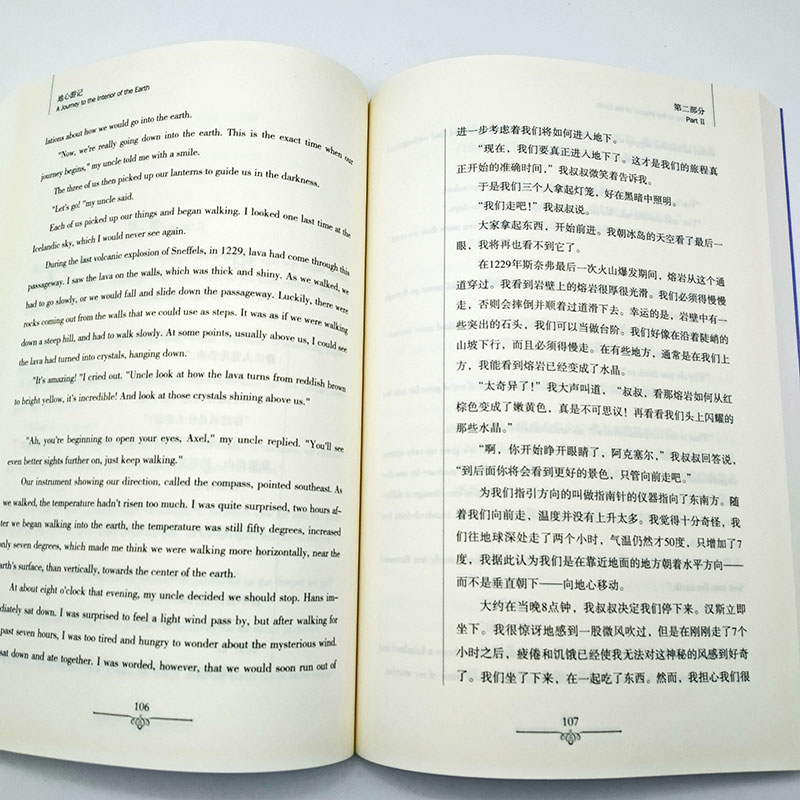 地心游记
A Journey to the Interior of the Earth
lations about how we would go into the earth.
"Now, we're really going down into the earth. This is the exact time when our
journey begins," my uncle told me with a smile.
The three of us then picked up our lanterns to guide us in the darkness.
"Let's go! "my uncle said.
Each of us picked up our things and began walking. I looked one last time at the
Icelandic sky, which I would never see again.
During the last volcanic explosion of Sneffels, in 1229, lava had come through this
passageway. I saw the lava on the walls, which was thick and shiny. As we walked, we
had to go slowly, or we would fall and slide down the passageway. Luckily, there were
rocks coming out from the walls that we could use as steps. It was as if we were walking
down a steep hill, and had to walk slowly. At some points, usually above us, I could see
the lava had turned into crystals, hanging down.
"It's amazing! "I cried out. "Uncle look at how the lava turns from reddish brown
to bright yellow, it's incredible! And look at those crystals shining above us."
"Ah, you're beginning to open your eyes, Axel," my uncle replied. "You'll see
even better sights further on, just keep walking."
Our instrument showing our direction, called the compass, pointed southeast. As
we walked, the temperature hadn't risen too much. I was quite surprised, two hours af-
ter we began walking into the earth, the temperature was still fifty degrees, increased
only seven degrees, which made me think we were walking more horizontally, near the
earth's surface, than vertically, towards the center of the earth.
At about eight o'clock that evening, my uncle decided we should stop. Hans im-
mediately sat down. I was surprised to feel a light wind pass by, but after walking for
past seven hours, I was too tired and hungry to wonder about the mysterious wind.
sat down and ate together. I was worried, however, that we would soon run out of
106
第二部分
Part II
进一步考虑着我们将如何进入地下。
“现在，我们要真正进入地下了。这才是我们的旅程真
正开始的准确时间，”我叔叔微笑着告诉我。
于是我们三个人拿起灯笼，好在黑暗中照明。
“我们走吧！”我叔叔说。
大家拿起东西，开始前进。我朝冰岛的天空看了最后一
眼，我将再也看不到它了。
在1229年斯奈弗最后一次火山爆发期间，熔岩从这个通
道穿过。我看到岩壁上的熔岩很厚很光滑。我们必须得慢慢
走，否则会摔倒并顺着过道滑下去。幸运的是，岩壁中有一
些突出的石头，我们可以当做台阶。我们好像在沿着陡峭的
山坡下行，而且必须得慢走。在有些地方，通常是在我们上
方，我能看到熔岩已经变成了水晶。
“太奇异了！”我大声叫道，“叔叔，看那熔岩如何从红
棕色变成了嫩黄色，真是不可思议！再看看我们头上闪耀的
那些水晶。”
“啊，你开始睁开眼睛了，阿克塞尔，”我叔叔回答说，
“到后面你将会看到更好的景色，只管向前走吧。”
为我们指引方向的叫做指南针的仪器指向了东南方。随
着我们向前走，温度并没有上升太多。我觉得十分奇怪，我
们往地球深处走了两个小时，气温仍然才50度，只增加了7
度，我据此认为我们是在靠近地面的地方朝着水平方向——
而不是垂直朝下——向地心移动。
大约在当晚8点钟，我叔叔决定我们停下来。汉斯立即
坐下。我很惊讶地感到一股微风吹过，但是在刚刚走了7个
小时之后，疲倦和饥饿已经使我无法对这神秘的风感到好奇
了。我们坐了下来，在一起吃了东西。然而，我担心我们很
107